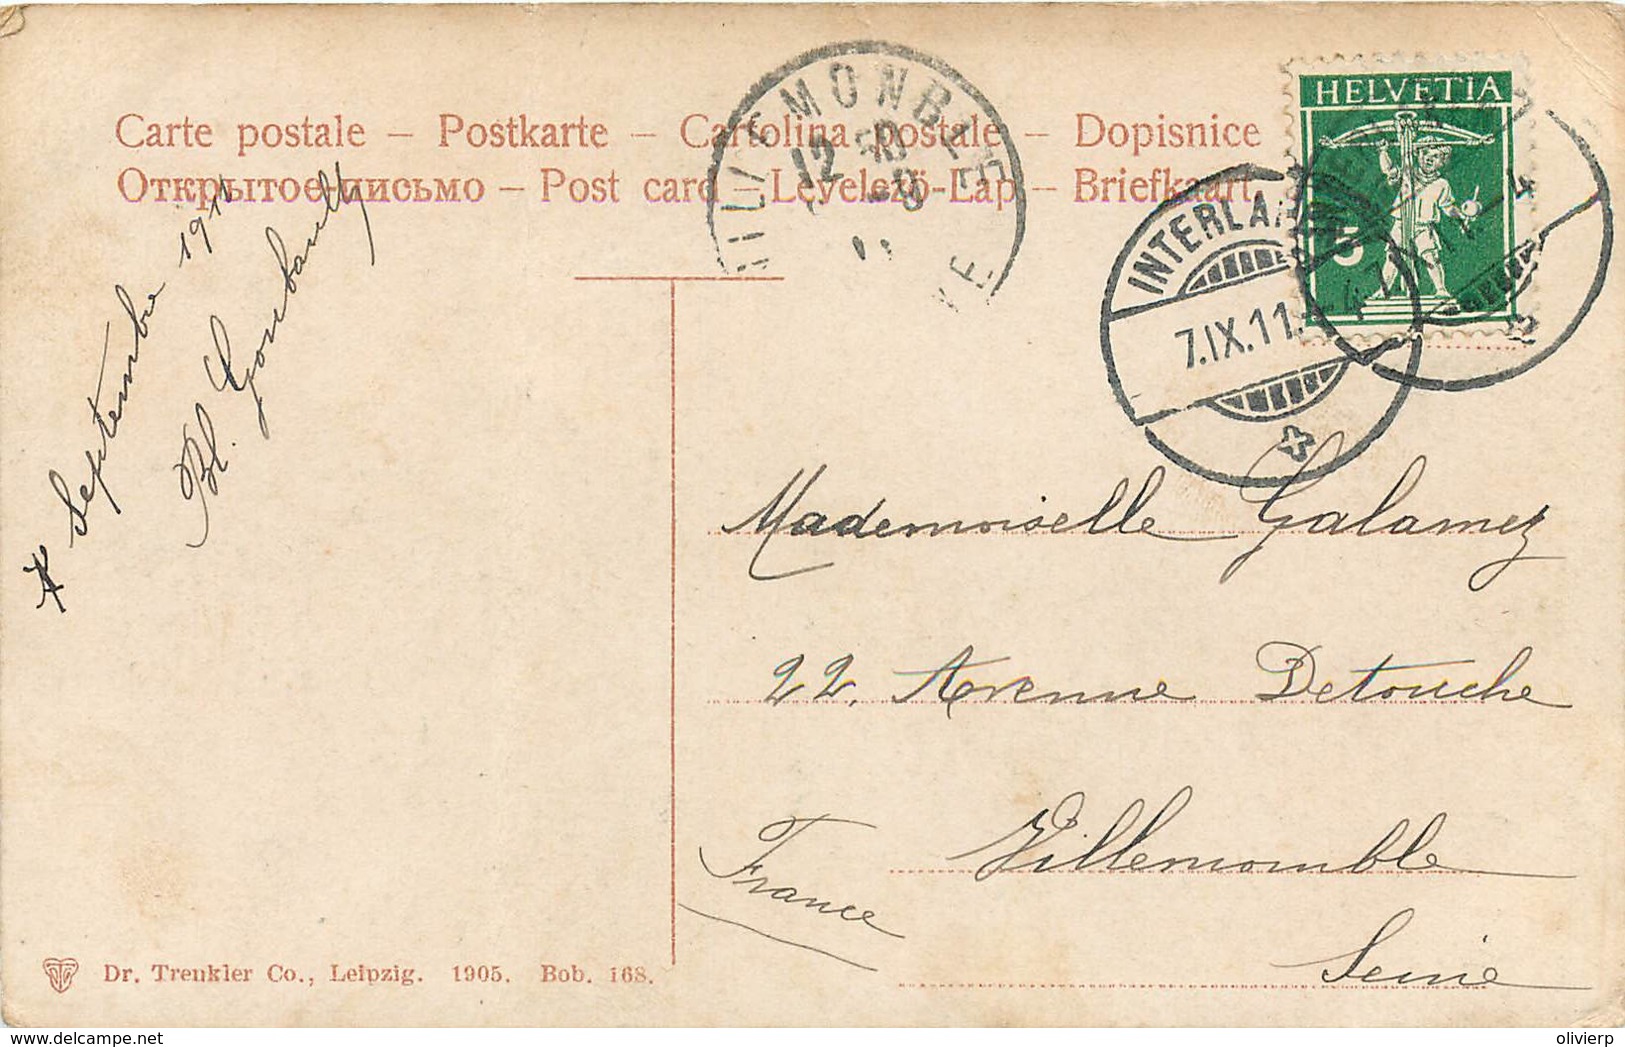 Carte postale – Postkarte – Cartolina postale – Dopisnice
Открытое письмо – Post card – Levelező-Lap – Briefkaart
HELVETIA
5
MONBLE
12
INTERLAKEN
7.IX.11.
7 Septembre 1911
Mademoiselle Galamez
22, Avenue Detouche
Villemomble
Seine
France
Dr. Trenkler Co., Leipzig. 1905. Bob. 168.
delcampe.net
olivierp